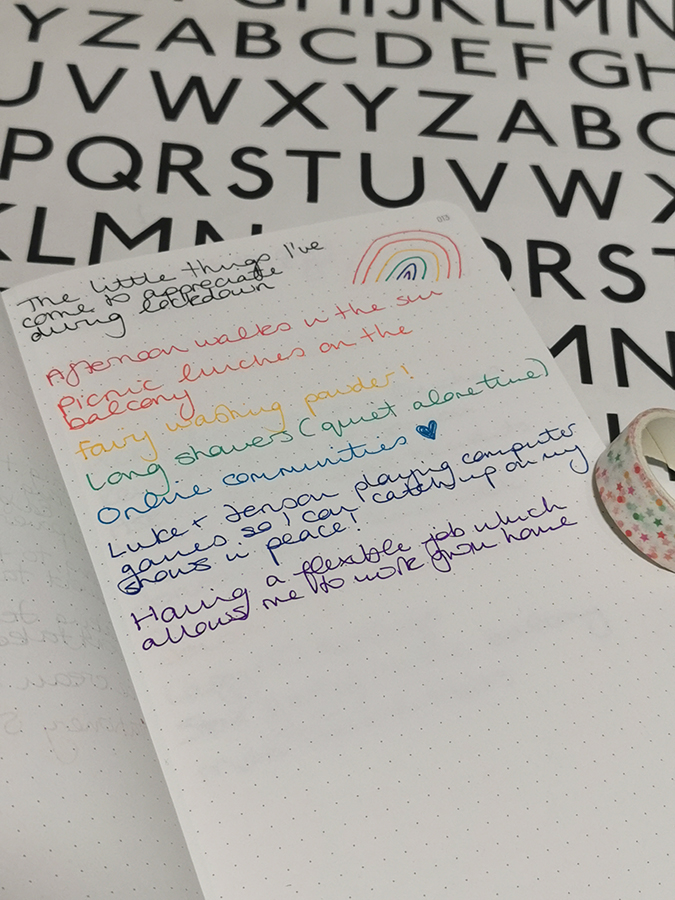 GHIJKLMN
YZABCDEFGH
UVWXYZABC
PQRSTUVWX
KLMN
QRST
MN
U
013
The little things I've
come to appreciate
during lockdown
Afternoon walks in the sun
Picnic lunches on the
balcony
Fairy washing powder!
Long showers (quiet alone time)
Online communities
Luke + Jenson playing computer
games so I can catch up on my
shows in peace!
Having a flexible job which
allows me to work from home